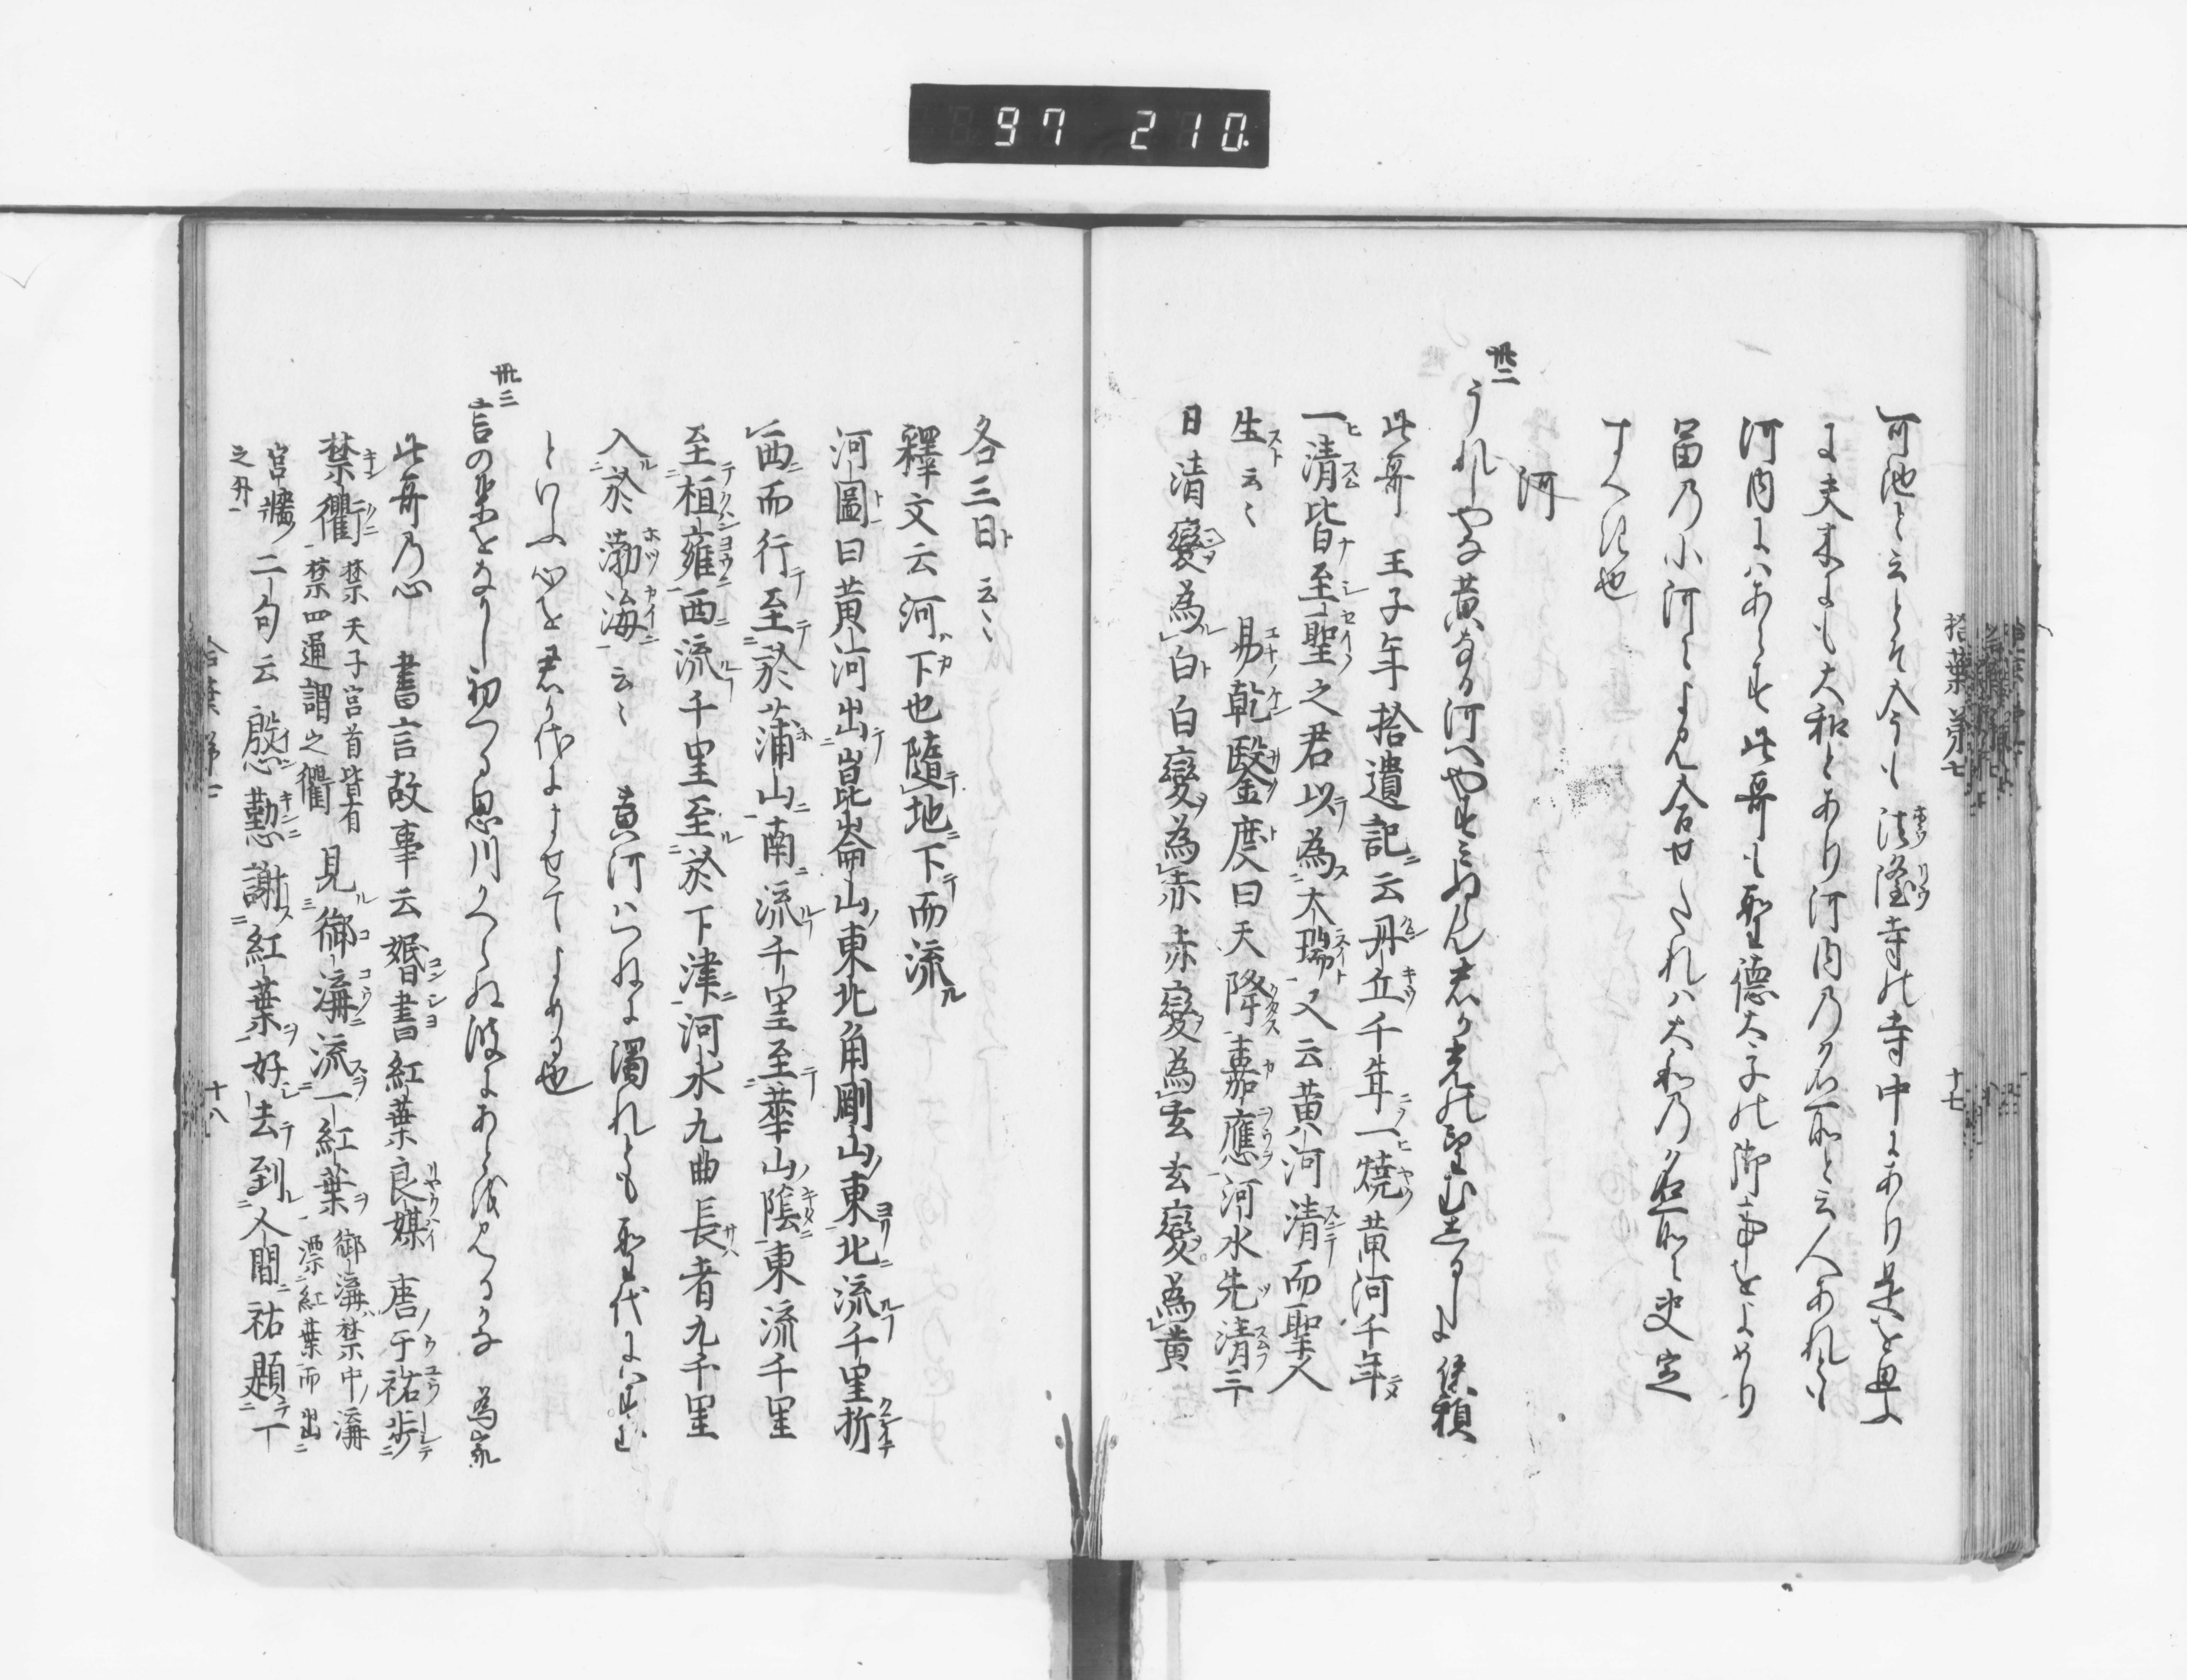 97 210
可池と云とそ今も法隆寺の寺中にあり是を思ふ
に夫木にも大和とあり河内の名所と云人あれとも
河内にはあらす此哥も聖徳太子の御事をよめり
富の小河とよみ合せたれは大和の名所と決定
すへき也
河
卅二
うれしやな黄なる河へやすみぬらん 光の 保頼
此哥 王子年拾遺記云丹丘千年一燒黄河千年
一清皆至聖之君以為大瑞又云黄河清而聖人
生云〻 易乾鑿度曰天降嘉應河水先清三
日清變為白白變為赤赤變為玄玄變為黄
拾葉第七 十七
各三日云〻
釋文云河下也隨地下而流
河圖曰黄河出崑崙山東北角剛山東北流千里折
西而行至於蒲山南流千里至華山陰東流千里
至植雍西流千里至於下津河水九曲長者九千里
入於渤海云〻 黄河はつねに濁れとも聖代には
といふ心を君か代によませてよめる也
卅三
言の葉をなかし初つる思川かへらぬ波にあとを見るかな 為家
此哥の心 書言故事云婚書紅葉良媒 唐于祐歩
禁衢 禁天子宮首皆有禁四通謂之衢 見御溝流一紅葉 御溝禁中溝漂紅葉而出
宮牆之外 二句云 慇懃謝紅葉好去到人間祐題一
拾葉第七 十八